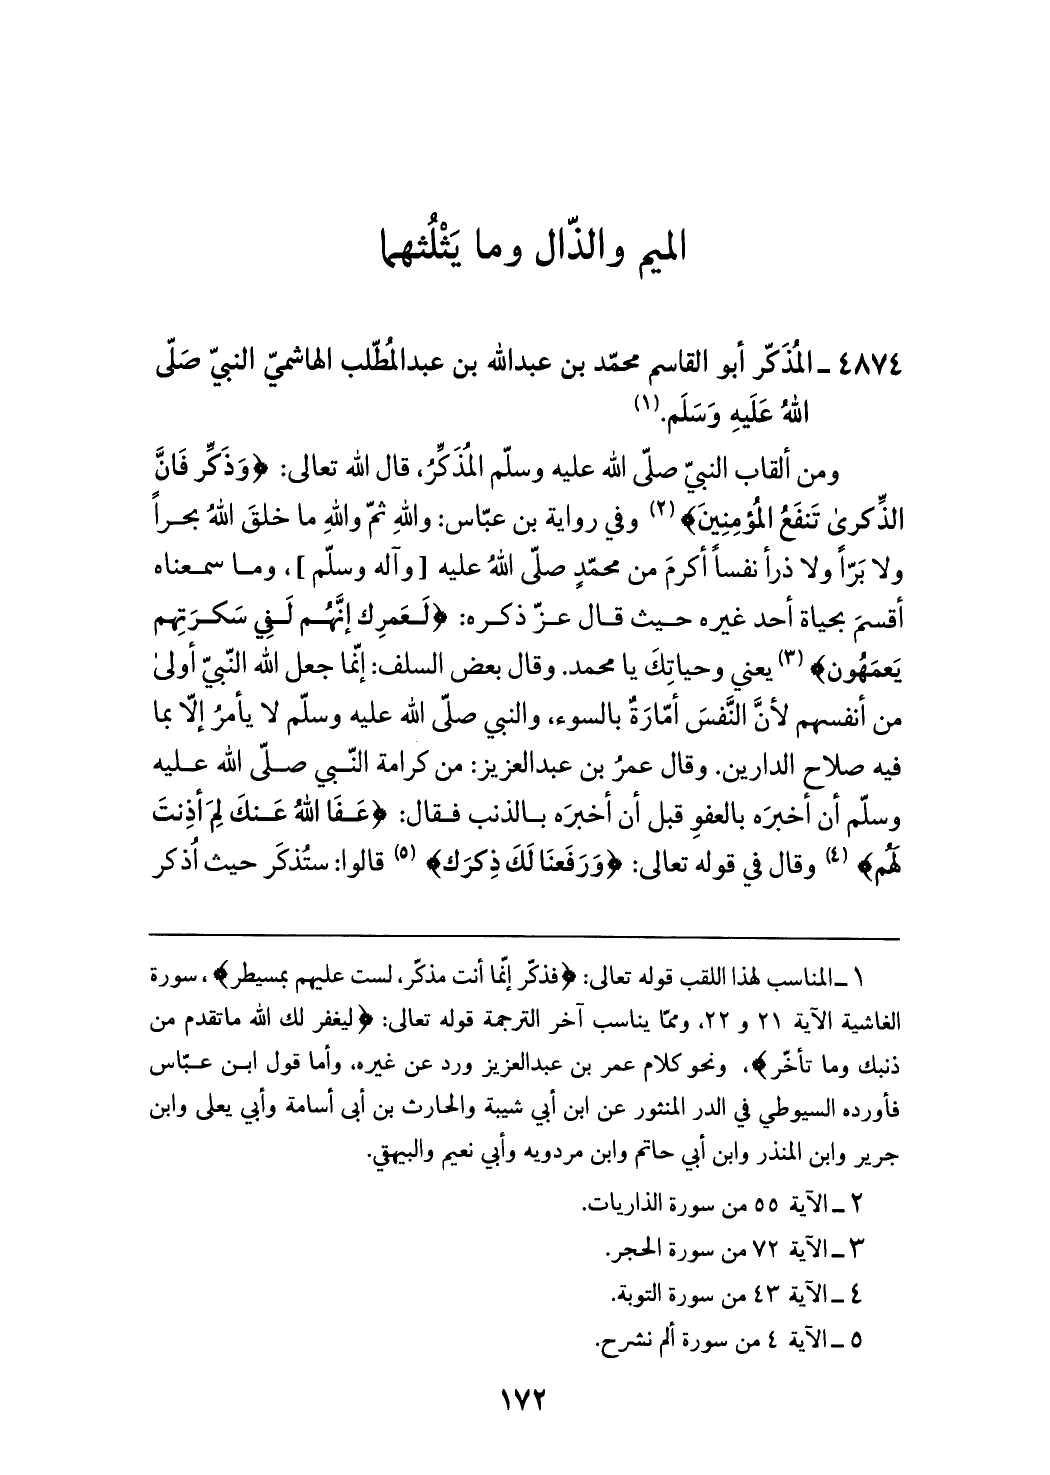 الميم والذّال وما يَثْلُثهما
٤٨٧٤ ـ المُذَكّر أبو القاسم محمّد بن عبدالله بن عبدالمُطّلب الهاشميّ النبيّ صَلّى
اللهُ عَلَيهِ وَسَلَم.(١)
ومن ألقاب النبيّ صلّى الله عليه وسلّم المُذَكِّرُ، قال الله تعالى: ﴿وَذَكِّر فَانَّ
الذِّكرىٰ تَنفَعُ المُؤمِنِينَ﴾(٢) وفي رواية بن عبّاس: واللهِ ثمّ واللهِ ما خلقَ اللهُ بحراً
ولا بَرّاً ولا ذرأ نفساً أكرمَ من محمّدٍ صلّى اللهُ عليه [وآله وسلّم]، وما سمعناه
أقسمَ بحياة أحد غيره حيث قال عزّ ذكره: ﴿لَعَمرِك إنَّهُم لَفِي سَكرَتِهم
يَعمَهُون﴾(٣) يعني وحياتِكَ يا محمد. وقال بعض السلف: إنّما جعل الله النّبيّ أولىٰ
من أنفسهم لأنَّ النَّفسَ أمّارَةٌ بالسوء، والنبي صلّى الله عليه وسلّم لا يأمرُ إلّا بما
فيه صلاح الدارين. وقال عمرُ بن عبدالعزيز: من كرامة النّبي صلّى الله عليه
وسلّم أن أخبرَه بالعفوِ قبل أن أخبرَه بالذنب فقال: ﴿عَفَا اللهُ عَنكَ لِمَ أذِنتَ
لَهُم﴾(٤) وقال في قوله تعالى: ﴿وَرَفَعنَا لَكَ ذِكرَك﴾(٥) قالوا: ستُذكَر حيث اُذكر
١ ـ المناسب لهذا اللقب قوله تعالى: ﴿فذكّر إنّما أنت مذكّر، لست عليهم بمسيطر﴾، سورة
الغاشية الآية ٢١ و ٢٢، وممّا يناسب آخر الترجمة قوله تعالى: ﴿ليغفر لك الله ماتقدم من
ذنبك وما تأخّر﴾، ونحو كلام عمر بن عبدالعزيز ورد عن غيره، وأما قول ابن عبّاس
فأورده السيوطي في الدر المنثور عن ابن أبي شيبة والحارث بن أبى أسامة وأبي يعلى وابن
جرير وابن المنذر وابن أبي حاتم وابن مردويه وأبي نعيم والبيهقي.
٢ ـ الآية ٥٥ من سورة الذاريات.
٣ ـ الآية ٧٢ من سورة الحجر.
٤ ـ الآية ٤٣ من سورة التوبة.
٥ ـ الآية ٤ من سورة ألم نشرح.
١٧٢